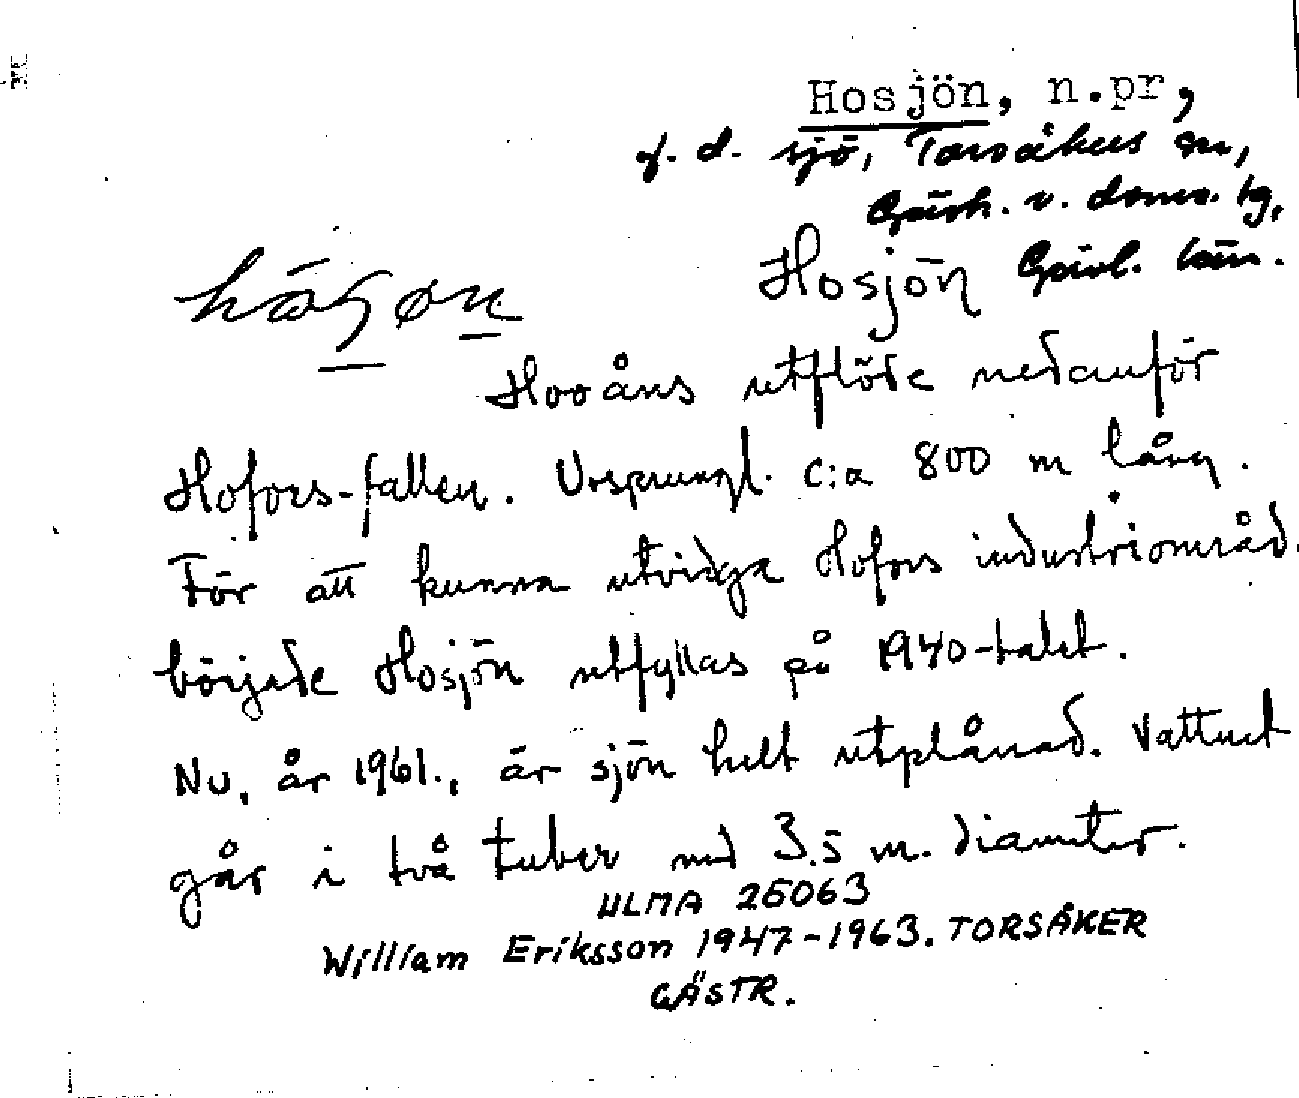 Hosjön, n.pr,
f. d. sjö, Torsåkers sn,
Gästr. v. doms. tg,
Hosjön Gävl. län.
Hooåns utflöde nedanför
Hofors-fallen. Ursprungl. c:a 800 m lång.
För att kunna utvidga Hofors industriområd.
började Hosjön utfyllas på 1940-talet.
Nu, år 1961., är sjön helt utplånad. Vattnet
går i två tuber med 3.5 m. diameter.
ULMA 26063
William Eriksson 1947-1963. TORSÅKER
GÄSTR.